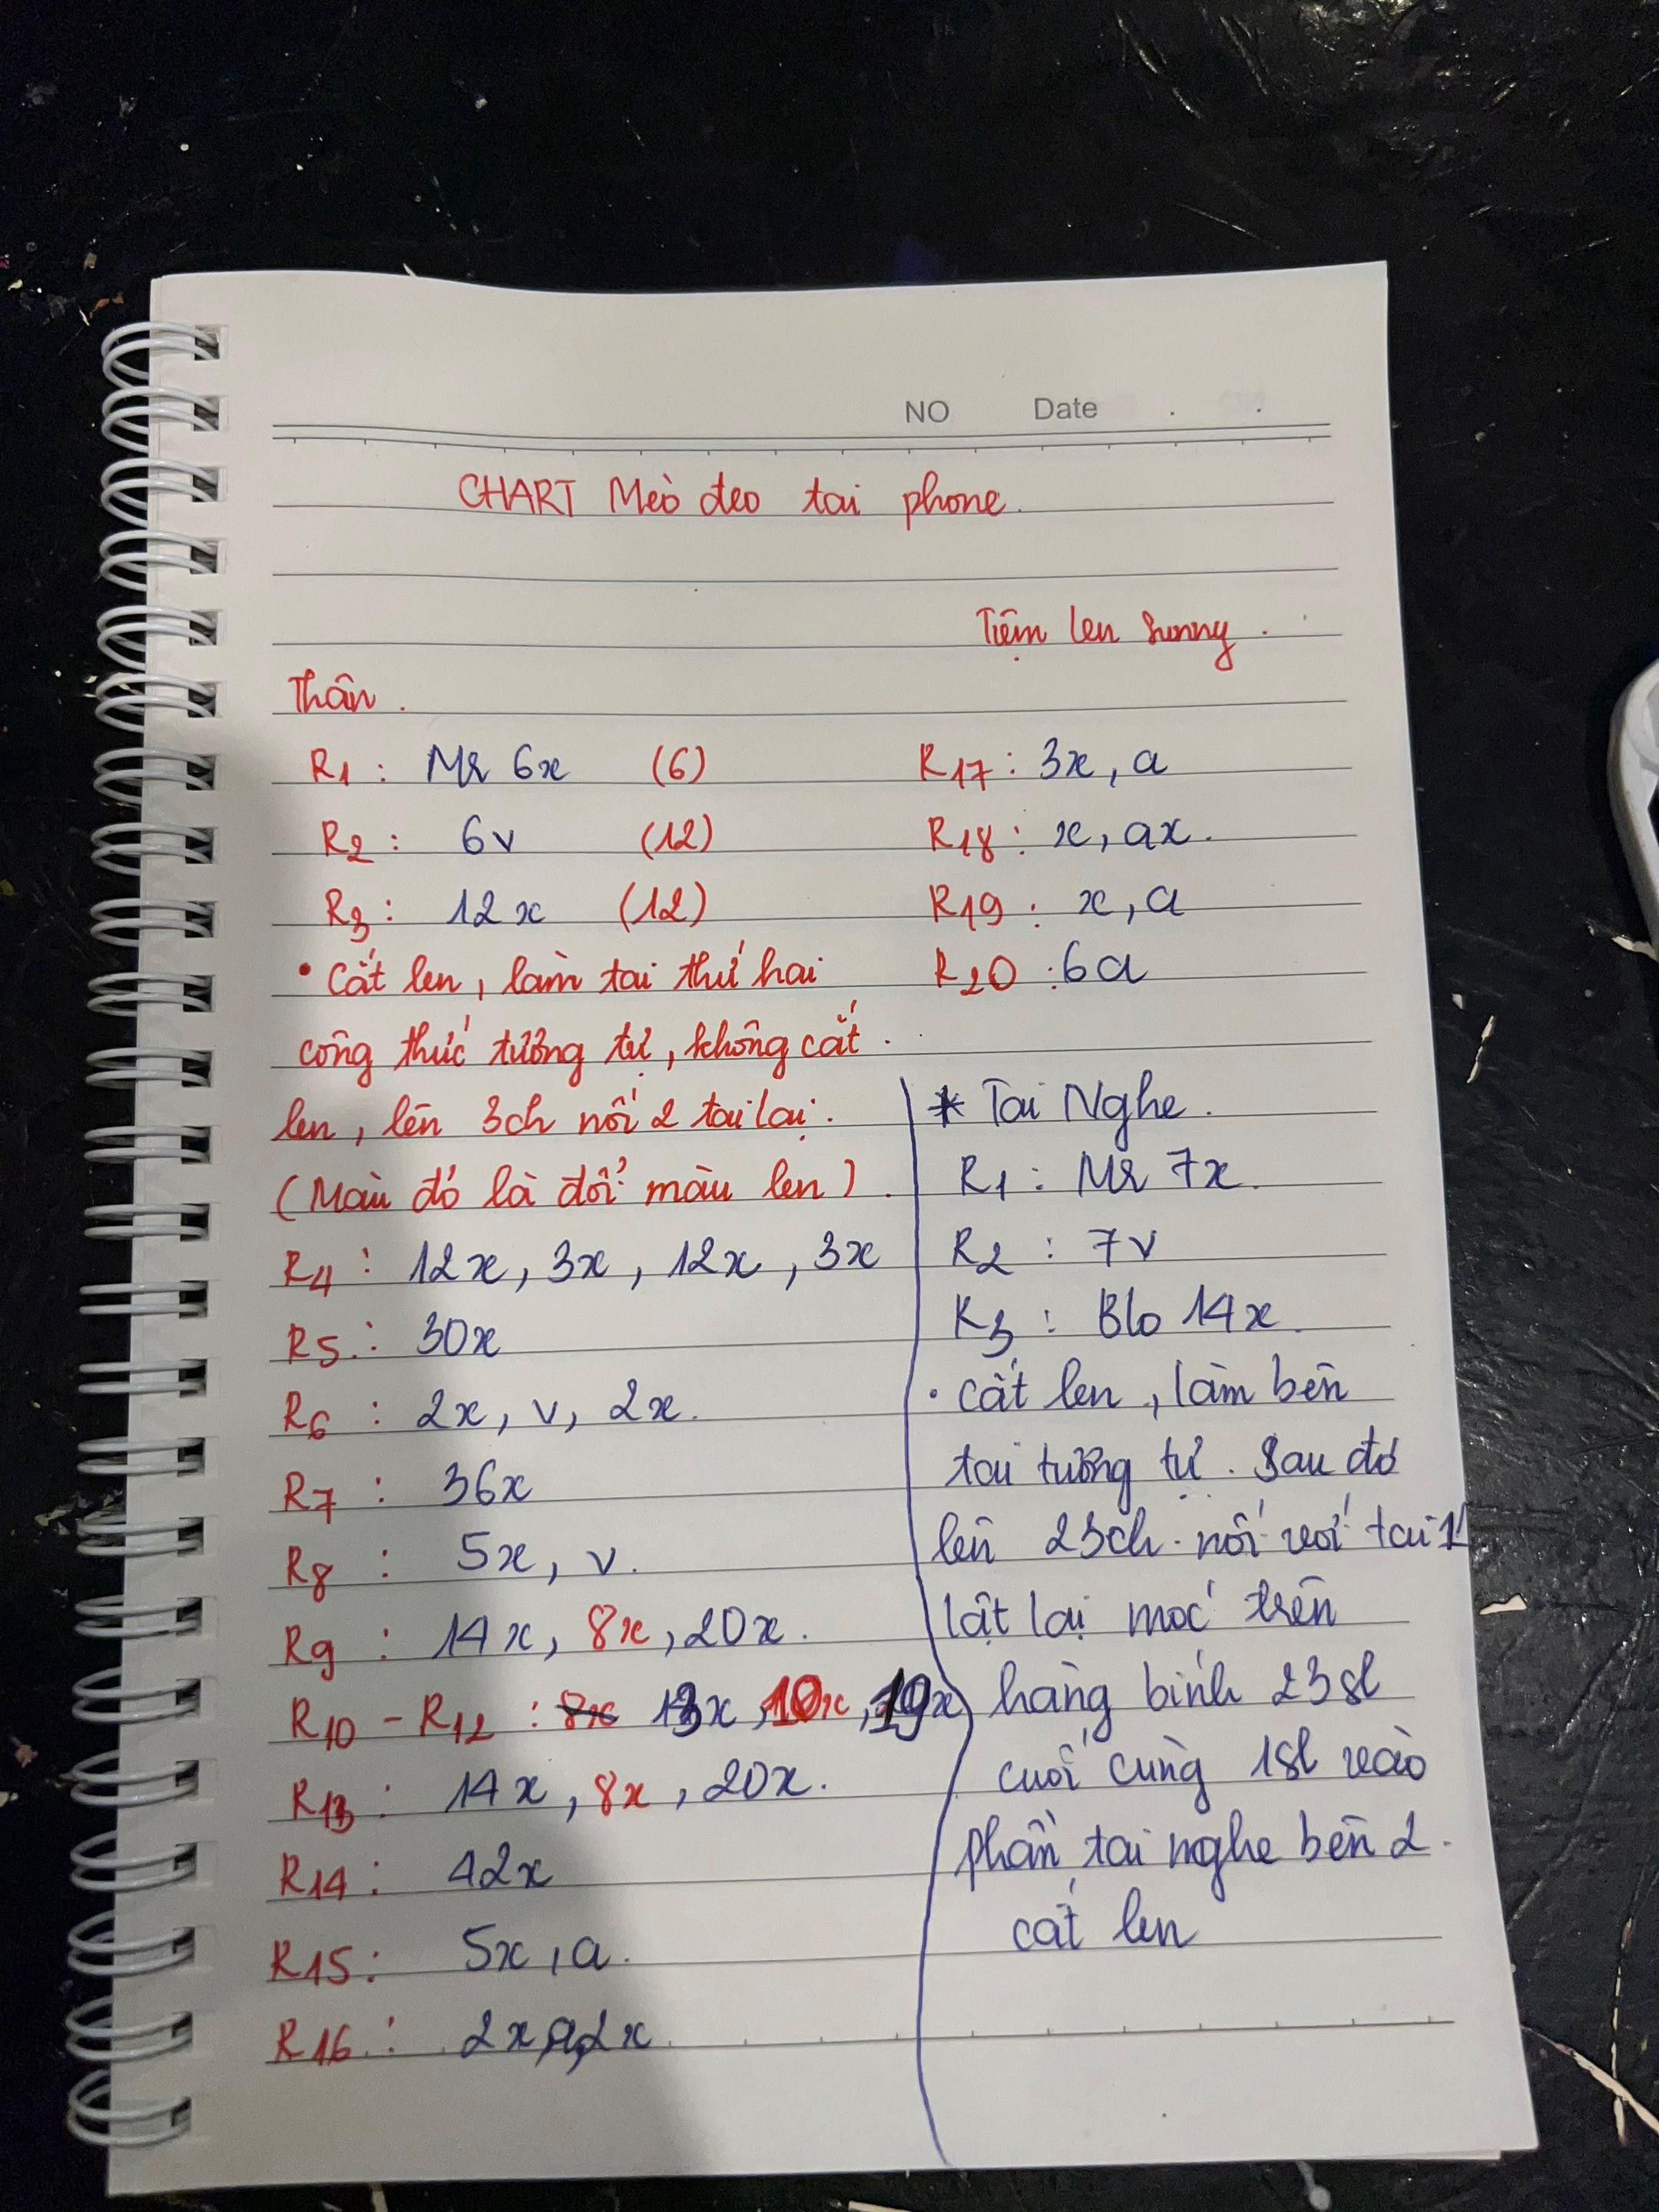 NO Date
CHART Mèo đeo tai phone.
Tiệm len Sunny.
Thân.
R1: Mr 6x (6)
R2: 6v (12)
R3: 12x (12)
• Cắt len, làm tai thứ hai
công thức tương tự, không cắt.
len, lên 3ch nối 2 tai lại.
(Màu đỏ là đổi màu len).
R4: 12x, 3x, 12x, 3x
R5: 30x
R6: 2x, v, 2x.
R7: 36x
R8: 5x, v.
R9: 14x, 8x, 20x.
R10 - R12: 13x, 10x, 19x
R13: 14x, 8x, 20x.
R14: 42x
R15: 5x, a.
R16: 2x, a, 2x
R17: 3x, a
R18: x, ax.
R19: x, a
R20: 6a
* Tai Nghe.
R1: Mr 7x.
R2: 7v
R3: Blo 14x.
• cắt len, làm bên
tai tương tự. Sau đó
lên 23ch. nối với tai 1
lật lại móc trên
hàng bính 23sl
cuối cùng 1sl vào
phần tai nghe bên 2.
cắt len